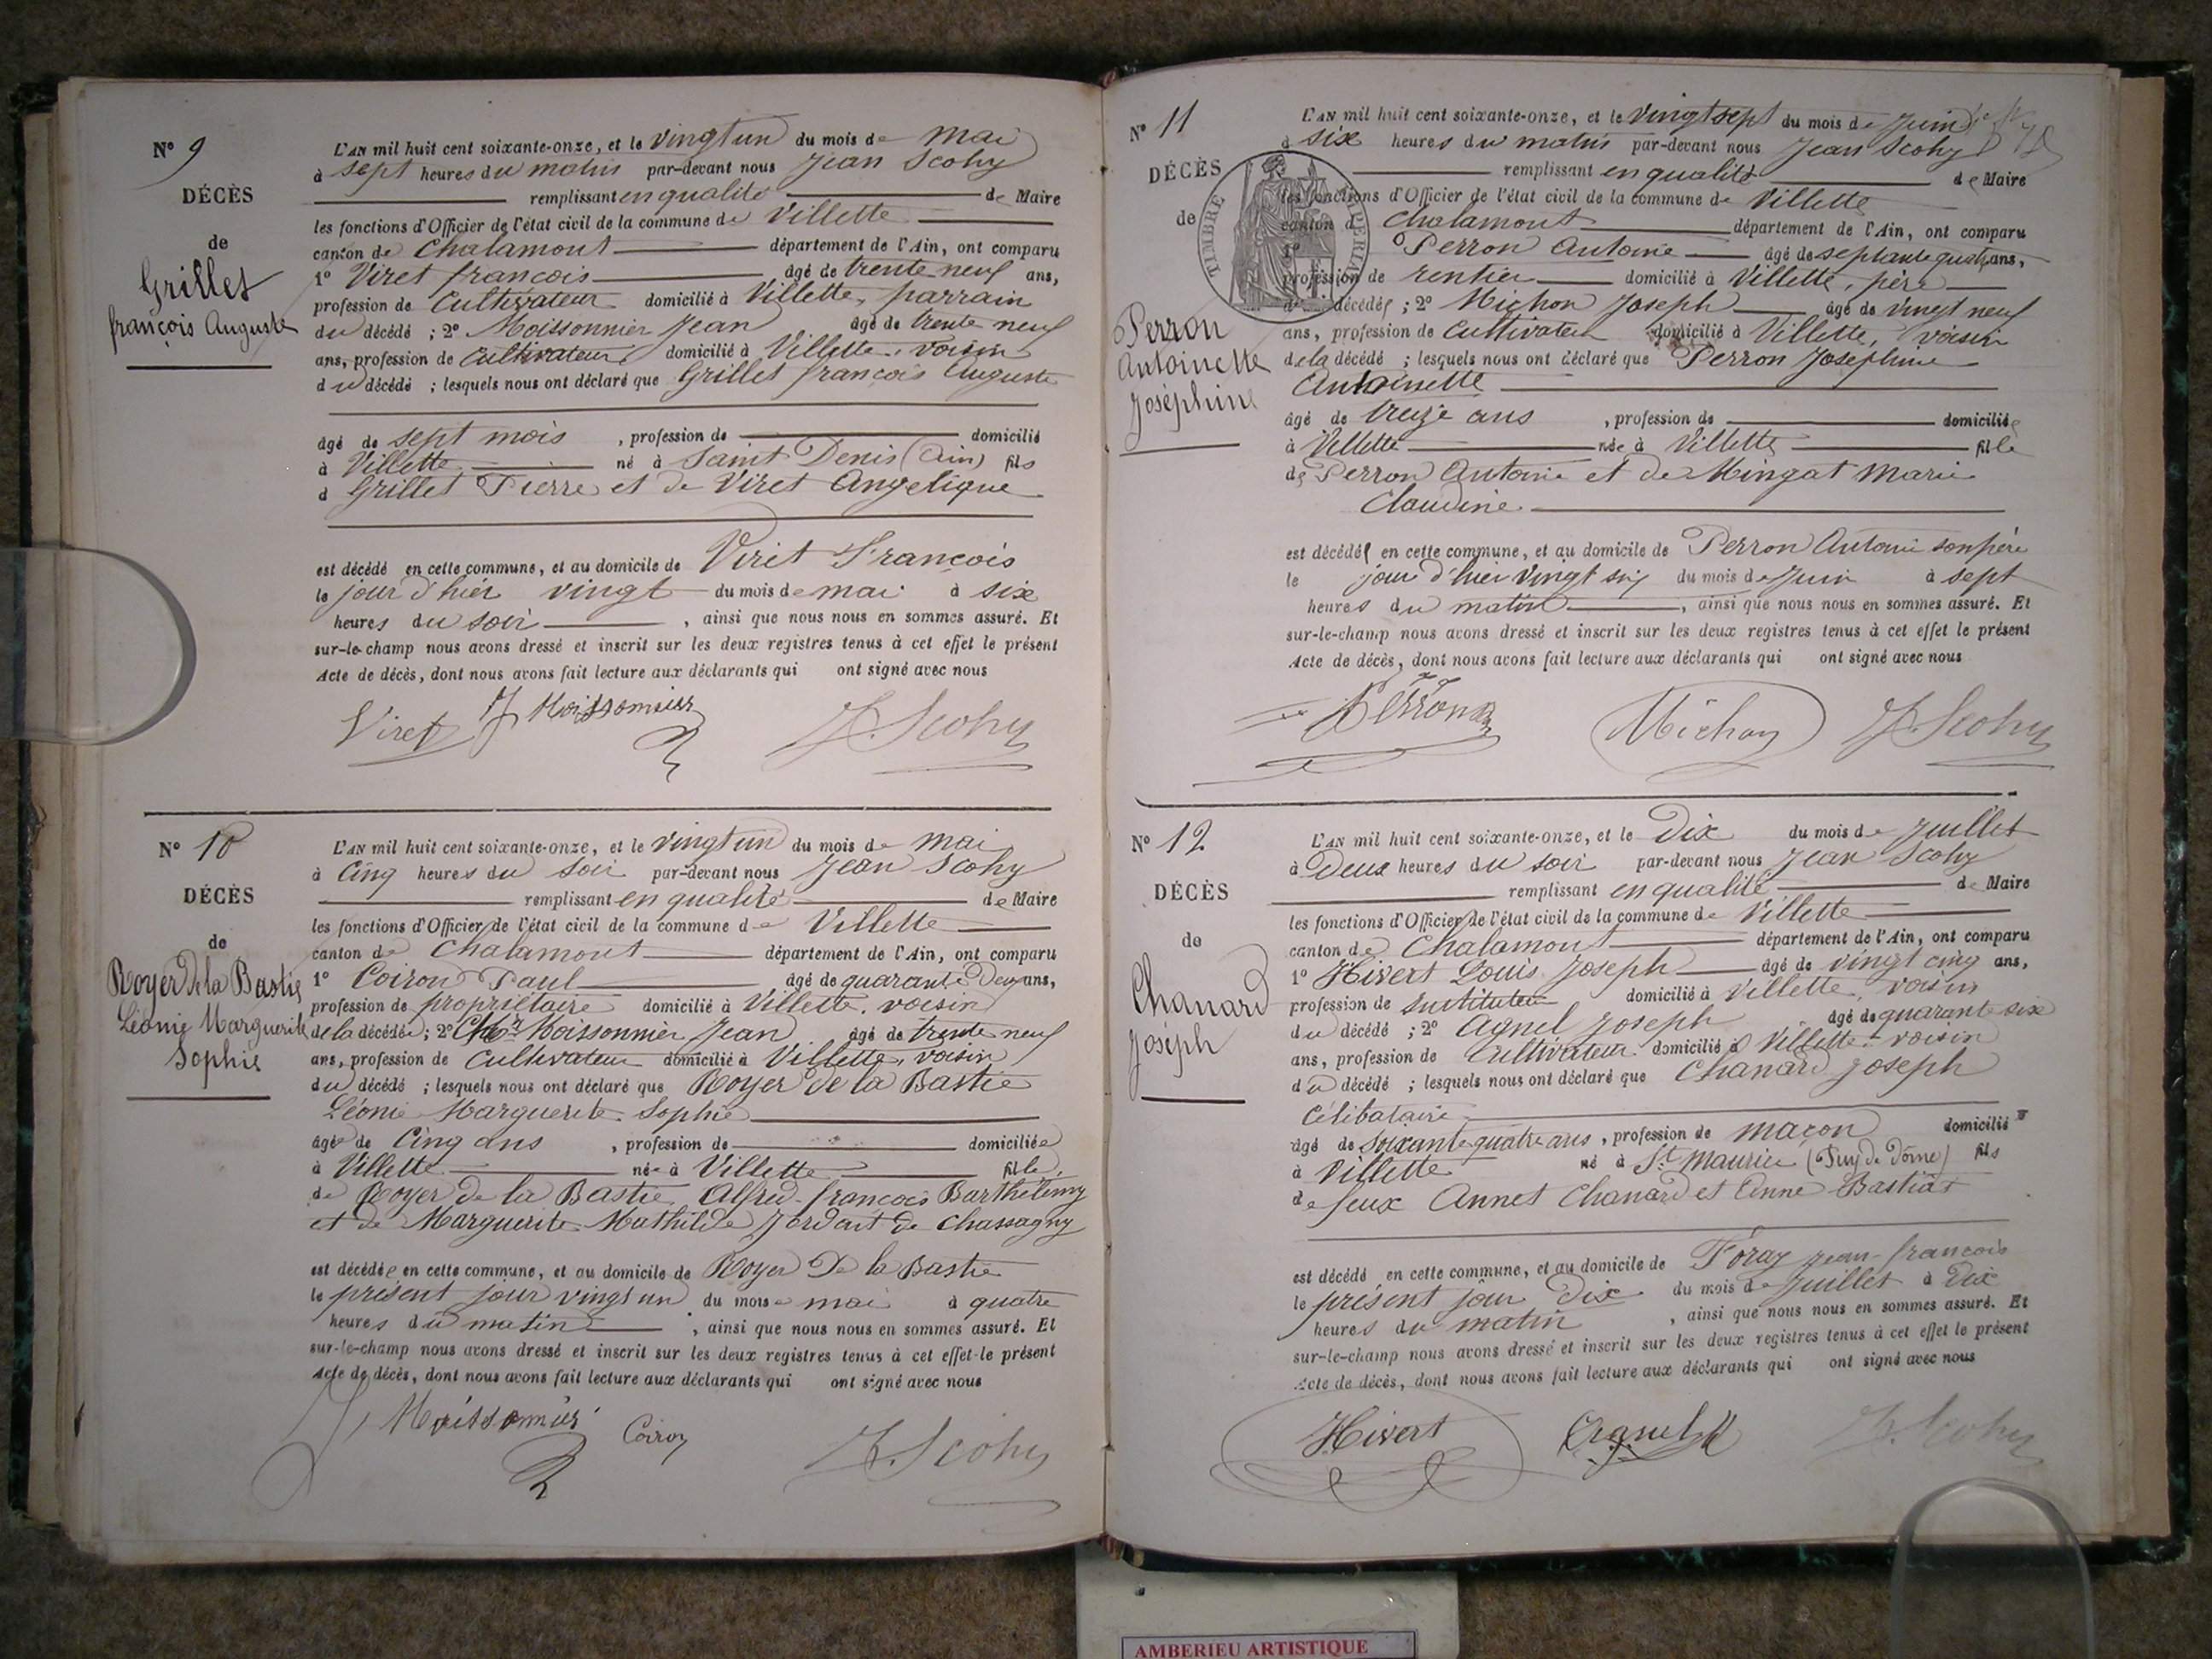 N° 9
DÉCÈS
de
Grillet
françois Auguste
L'AN mil huit cent soixante-onze, et le vingt un du mois de mai
à sept heures du matin par-devant nous Jean Scohy
remplissant en qualité de Maire
les fonctions d'Officier de l'état civil de la commune de Villette
canton de Chalamont département de l'Ain, ont comparu
1° Viret françois âgé de trente neuf ans,
profession de Cultivateur domicilié à Villette, parrain
du décédé ; 2° Moissonnier Jean âgé de trente neuf
ans, profession de Cultivateur domicilié à Villette, voisin
du décédé ; lesquels nous ont déclaré que Grillet françois Auguste
âgé de sept mois , profession de domicilié
à Villette né à Saint Denis (Ain) fils
d Grillet Pierre et de Viret Angelique
est décédé en cette commune, et au domicile de Viret François
le jour d'hier vingt du mois de mai à six
heures du soir , ainsi que nous nous en sommes assuré. Et
sur-le-champ nous avons dressé et inscrit sur les deux registres tenus à cet effet le présent
Acte de décès, dont nous avons fait lecture aux déclarants qui ont signé avec nous
Viret J Moissonnier J. Scohy
N° 10
DÉCÈS
de
Royer de la Bastie
Léonie Marguerite
Sophie
L'AN mil huit cent soixante-onze, et le vingt un du mois de mai
à Cinq heures du soir par-devant nous Jean Scohy
remplissant en qualité de Maire
les fonctions d'Officier de l'état civil de la commune de Villette
canton de Chalamont département de l'Ain, ont comparu
1° Coiron Paul âgé de quarante Deux ans,
profession de propriétaire domicilié à Villette, voisin
de la décédée ; 2° Moissonnier Jean âgé de trente neuf
ans, profession de Cultivateur domicilié à Villette, voisin
du décédé ; lesquels nous ont déclaré que Royer de la Bastie
Léonie Marguerite Sophie
âgée de Cinq ans , profession de domiciliée
à Villette née à Villette fille
de Royer de la Bastie Alfred françois Barthélemy
et de Marguerite Mathilde Jordant de Chassagny
est décédée en cette commune, et au domicile de Royer De la Bastie
le présent jour vingt un du mois mai à quatre
heures du matin , ainsi que nous nous en sommes assuré. Et
sur-le-champ nous avons dressé et inscrit sur les deux registres tenus à cet effet le présent
Acte de décès, dont nous avons fait lecture aux déclarants qui ont signé avec nous
J Moissonnier Coiron J. Scohy
N° 11
DÉCÈS
de
TIMBRE IMPÉRIAL
Perron
Antoinette
Joséphine
L'AN mil huit cent soixante-onze, et le vingt sept du mois de Juin
à six heures du matin par-devant nous Jean Scohy
remplissant en qualité de Maire
les fonctions d'Officier de l'état civil de la commune de Villette
canton de Chalamont département de l'Ain, ont comparu
1° Perron Antoine âgé de septante quatre ans,
profession de rentier domicilié à Villette, père
de décédée ; 2° Michon Joseph âgé de vingt neuf
ans, profession de Cultivateur domicilié à Villette, voisin
de la décédé ; lesquels nous ont déclaré que Perron Joséphine
Antoinette
âgé de treize ans , profession de domiciliée
à Villette née à Villette fille
de Perron Antoine et de Mingat Marie
Claudine
est décédée en cette commune, et au domicile de Perron Antoine son père
le jour d'hier vingt six du mois de Juin à sept
heures du matin , ainsi que nous nous en sommes assuré. Et
sur-le-champ nous avons dressé et inscrit sur les deux registres tenus à cet effet le présent
Acte de décès, dont nous avons fait lecture aux déclarants qui ont signé avec nous
Perron Michon J. Scohy
N° 12
DÉCÈS
de
Chanard
Joseph
L'AN mil huit cent soixante-onze, et le Dix du mois de Juillet
à Deux heures du soir par-devant nous Jean Scohy
remplissant en qualité de Maire
les fonctions d'Officier de l'état civil de la commune de Villette
canton de Chalamont département de l'Ain, ont comparu
1° Hivert Louis Joseph âgé de vingt cinq ans,
profession de Instituteur domicilié à Villette, voisin
du décédé ; 2° Agnel Joseph âgé de quarante six
ans, profession de Cultivateur domicilié à Villette voisin
du décédé ; lesquels nous ont déclaré que Chanard Joseph
Célibataire
âgé de Soixante quatre ans , profession de maçon domicilié
à Villette né à St Maurice (Puy de Dôme) fils
de feux Annet Chanard et Anne Bastiat
est décédé en cette commune, et au domicile de Foray Jean-françois
le présent jour Dix du mois de Juillet à Dix
heures du matin , ainsi que nous nous en sommes assuré. Et
sur-le-champ nous avons dressé et inscrit sur les deux registres tenus à cet effet le présent
Acte de décès, dont nous avons fait lecture aux déclarants qui ont signé avec nous
Hivert Agnel J. Scohy
AMBERIEU ARTISTIQUE